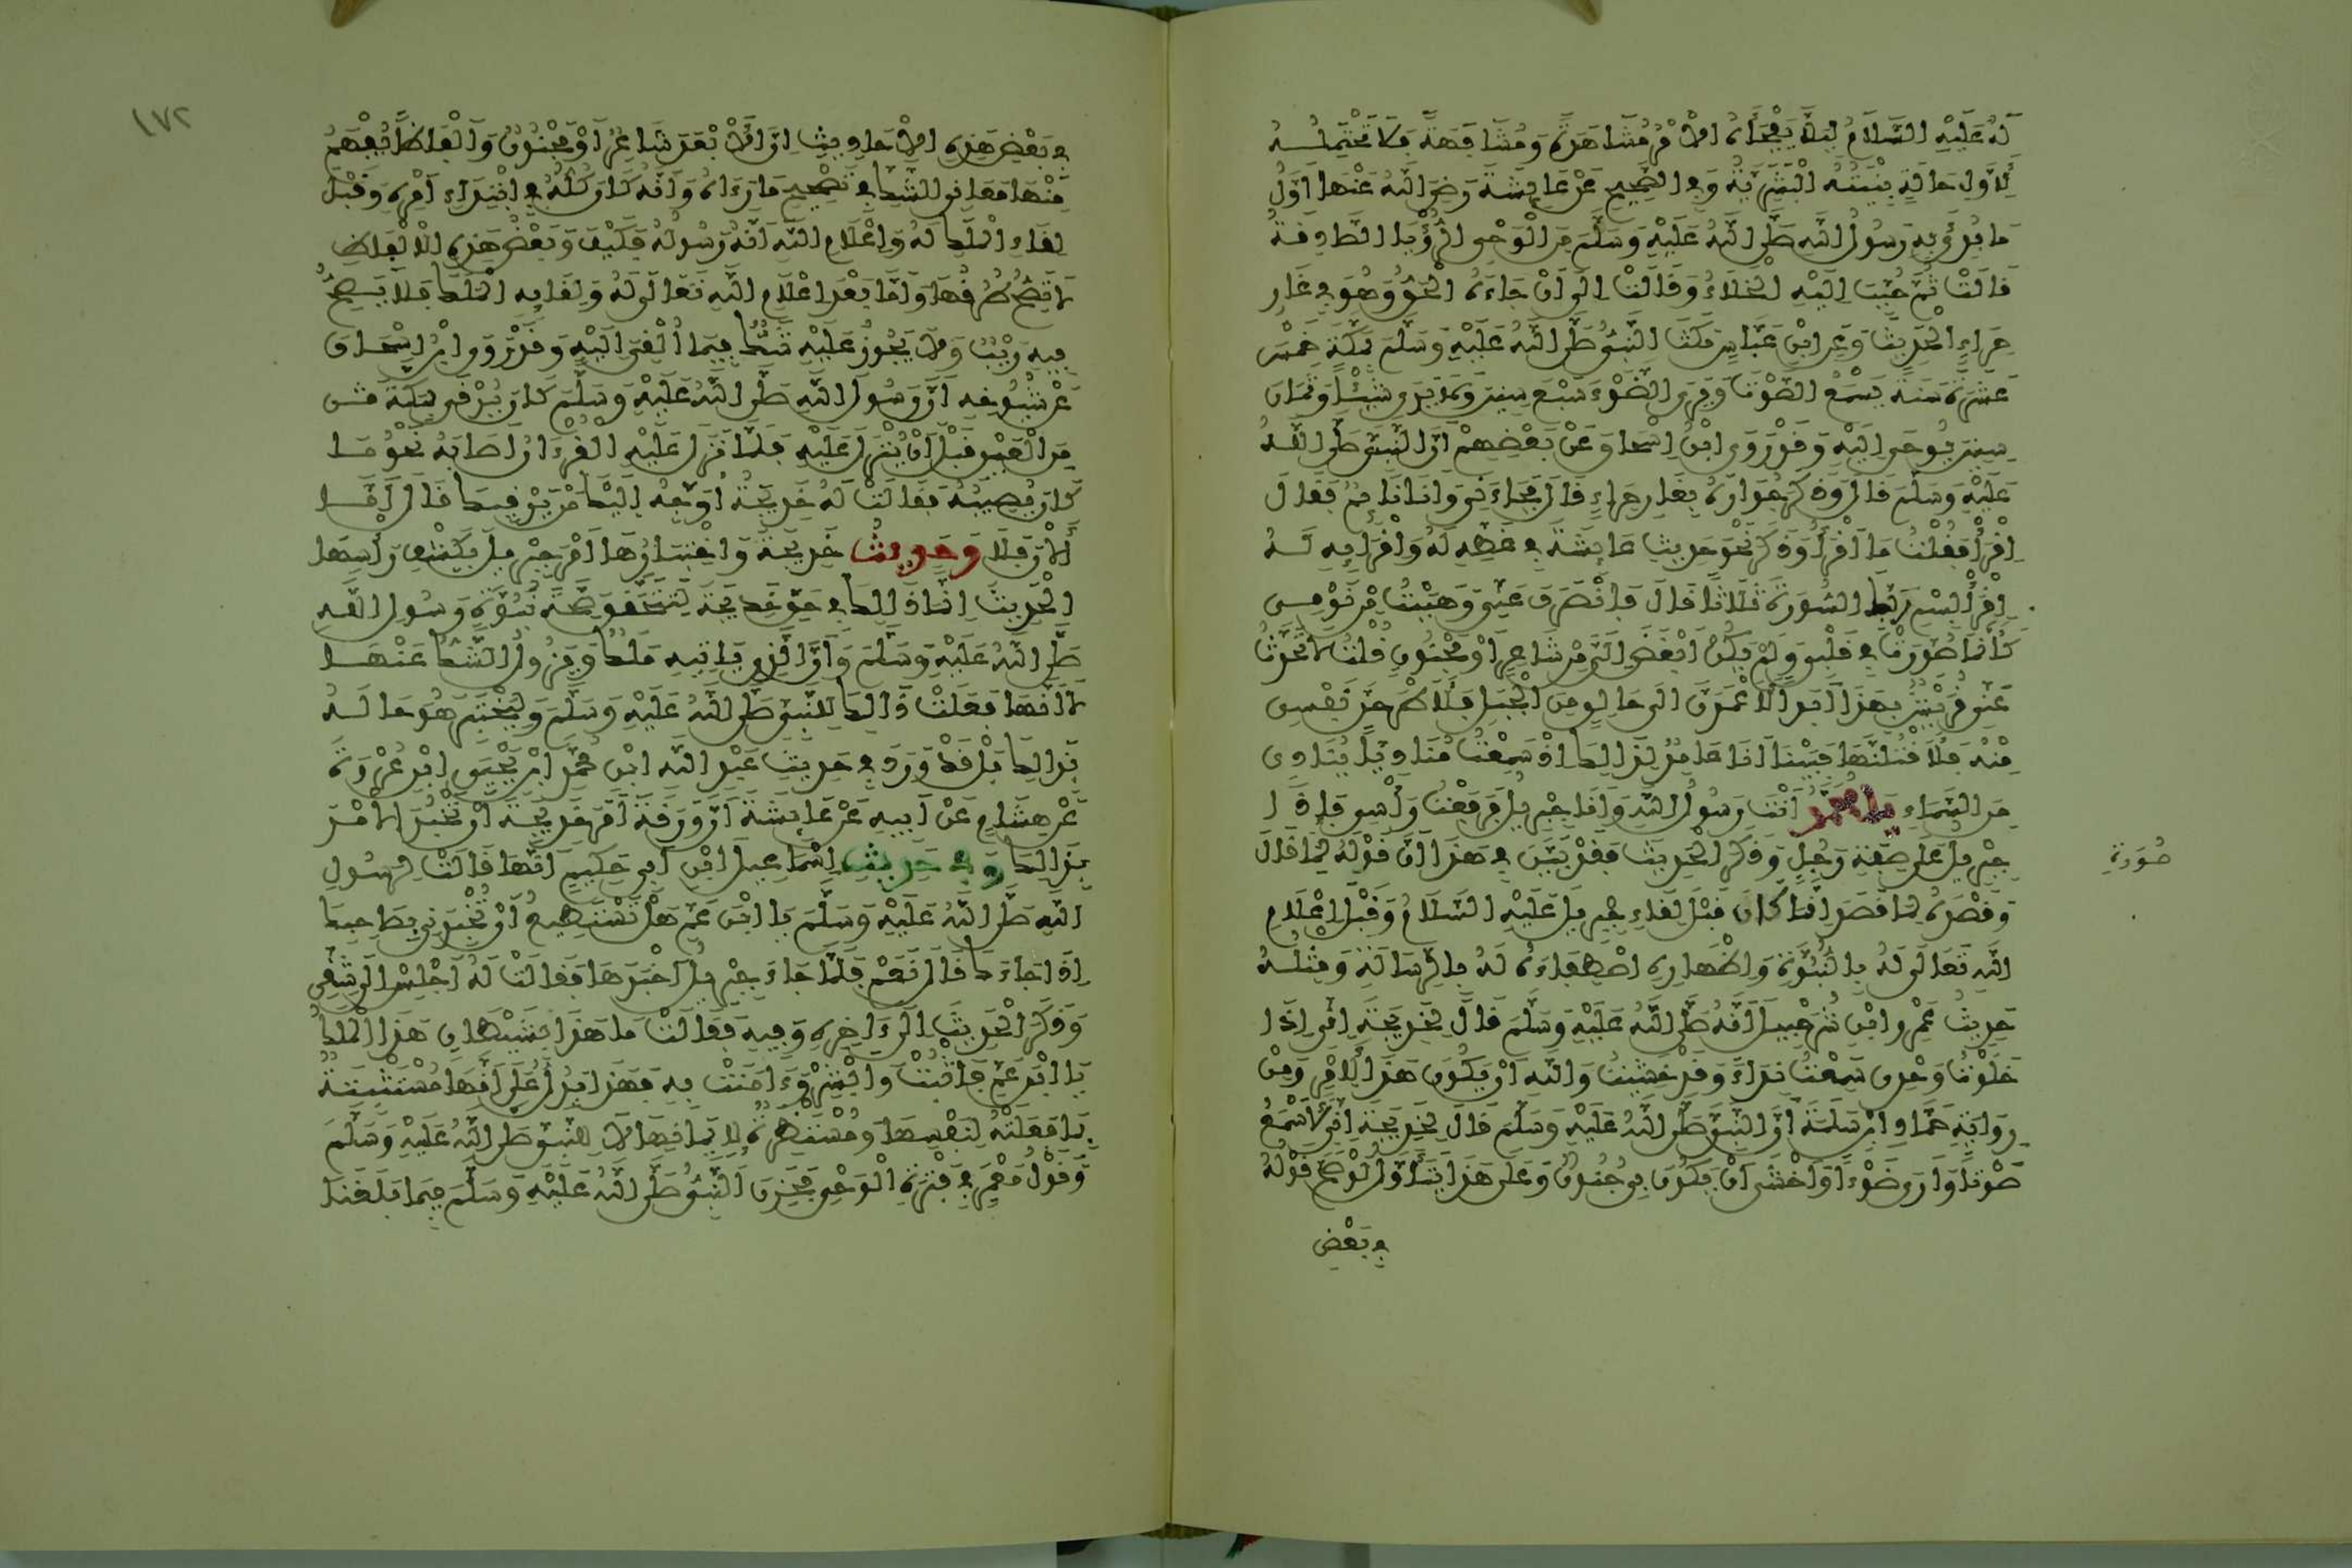 لَهُ عَلَيْهِ السَّلَامُ لِيَلَّا يَفْجَأَهُ الْأَمْرُ مُشَاهَدَةً وَمُشَافَهَةً فَلَا تَحْتَمِلُهُ
لِأَوَّلِ حَالَةٍ بِنْيَتُهُ الْبَشَرِيَّةُ وَفِي الصَّحِيحِ عَنْ عَائِشَةَ رَضِيَ اللَّهُ عَنْهَا أَوَّلُ
مَا بُدِئَ بِهِ رَسُولُ اللَّهِ صَلَّى اللَّهُ عَلَيْهِ وَسَلَّمَ مِنَ الْوَحْيِ الرُّؤْيَا الصَّادِقَةُ
قَالَتْ ثُمَّ حُبِّبَ إِلَيْهِ الْخَلَاءُ وَقَالَتْ إِلَى أَنْ جَاءَهُ الْحَقُّ وَهُوَ فِي غَارِ
حِرَاءِ الْحَدِيثَ وَعَنِ ابْنِ عَبَّاسٍ مَكَثَ النَّبِيُّ صَلَّى اللَّهُ عَلَيْهِ وَسَلَّمَ بِمَكَّةَ خَمْسَ
عَشَرَةَ سَنَةً يَسْمَعُ الصَّوْتَ وَيَرَى الضَّوْءَ سَبْعَ سِنِينَ وَلَا يَرَى شَيْئًا وَثَمَانَ
سِنِينَ يُوحَى إِلَيْهِ وَقَدْ رَوَى ابْنُ إِسْحَاقَ عَنْ بَعْضِهِمْ أَنَّ النَّبِيَّ صَلَّى اللَّهُ
عَلَيْهِ وَسَلَّمَ قَالَ وَذَكَرَ جِوَارَهُ بِغَارِ حِرَاءٍ قَالَ فَجَاءَنِي وَأَنَا نَائِمٌ فَقَالَ
اقْرَأْ فَقُلْتُ مَا أَقْرَأُ وَذَكَرَ نَحْوَ حَدِيثِ عَائِشَةَ فِي غَطِّهِ لَهُ وَإِقْرَائِهِ لَهُ
اقْرَأْ بِاسْمِ رَبِّكَ السُّورَةَ ثَلَاثًا قَالَ فَانْصَرَفَ عَنِّي وَهَبَبْتُ مِنْ نَوْمِي
كَأَنَّمَا صُوِّرَتْ فِي قَلْبِي وَلَمْ يَكُنْ أَبْغَضَ إِلَيَّ مِنْ شَاعِرٍ أَوْ مَجْنُونٍ قُلْتُ لَا تَحَدَّثُ
عَنِّي قُرَيْشٌ بِهَذَا أَبَدًا لَأَعْمِدَنَّ إِلَى حَالِقٍ مِنَ الْجَبَلِ فَلَأَطْرَحَنَّ نَفْسِي
مِنْهُ فَلَأَقْتُلَنَّهَا فَبَيْنَا أَنَا عَامِدٌ لِذَلِكَ إِذْ سَمِعْتُ مُنَادِيًا يُنَادِي
مِنَ السَّمَاءِ يَا مُحَمَّدُ أَنْتَ رَسُولُ اللَّهِ وَأَنَا جِبْرِيلُ فَرَفَعْتُ رَأْسِي فَإِذَا
جِبْرِيلُ عَلَى صِفَةِ رَجُلٍ وَذَكَرَ الْحَدِيثَ فَقَدْ بَيَّنَ فِي هَذَا أَنَّ قَوْلَهُ لِمَا قَالَ
صُورَةِ
وَقَصْدَهُ لِمَا قَصَدَ إِنَّمَا كَانَ قَبْلَ لِقَاءِ جِبْرِيلَ عَلَيْهِ السَّلَامُ وَقَبْلَ إِعْلَامِ
اللَّهِ تَعَالَى لَهُ بِالنُّبُوَّةِ وَإِظْهَارِهِ اصْطِفَاءَهُ لَهُ بِالرِّسَالَةِ وَمِثْلُهُ
حَدِيثُ عَمْرِو ابْنِ شُرَحْبِيلَ أَنَّهُ صَلَّى اللَّهُ عَلَيْهِ وَسَلَّمَ قَالَ لِخَدِيجَةَ إِنِّي إِذَا
خَلَوْتُ وَحْدِي سَمِعْتُ نِدَاءً وَقَدْ خَشِيتُ وَاللَّهِ أَنْ يَكُونَ هَذَا لِأَمْرٍ وَمِنْ
رِوَايَةِ حَمَّادِ ابْنِ سَلَمَةَ أَنَّ النَّبِيَّ صَلَّى اللَّهُ عَلَيْهِ وَسَلَّمَ قَالَ لِخَدِيجَةَ إِنِّي لَأَسْمَعُ
صَوْتًا وَأَرَى ضَوْءًا وَأَخْشَى أَنْ يَكُونَ بِي جُنُونٌ وَعَلَى هَذَا يُتَأَوَّلُ لَوْ صَحَّ قَوْلُهُ
فِي بَعْضِ
١٧٢
فِي بَعْضِ هَذِهِ الْأَحَادِيثِ إِنَّ الْأَبْعَدَ شَاعِرٌ أَوْ مَجْنُونٌ وَأَلْفَاظًا يُفْهَمُ
مِنْهَا مَعَانِي الشَّكِّ فِي تَصْحِيحِ مَا رَءَاهُ وَأَنَّهُ كَانَ كُلُّهُ فِي ابْتِدَاءِ أَمْرِهِ وَقَبْلَ
لِقَاءِ الْمَلَكِ لَهُ وَإِعْلَامِ اللَّهِ أَنَّهُ رَسُولُهُ فَكَيْفَ وَبَعْضُ هَذِهِ الْأَلْفَاظِ
لَا تَصِحُّ طُرُقُهَا وَأَمَّا بَعْدَ إِعْلَامِ اللَّهِ تَعَالَى لَهُ وَلِقَائِهِ الْمَلَكَ فَلَا يَصِحُّ
فِيهِ رَيْبٌ وَلَا يَجُوزُ عَلَيْهِ شَكٌّ فِيمَا أُلْقِيَ إِلَيْهِ وَقَدْ رَوَى ابْنُ إِسْحَاقَ
عَنْ شُيُوخِهِ أَنَّ رَسُولَ اللَّهِ صَلَّى اللَّهُ عَلَيْهِ وَسَلَّمَ كَانَ يُرْقَى بِمَكَّةَ
مِنَ الْعَيْنِ قَبْلَ أَنْ يُنْزَلَ عَلَيْهِ فَلَمَّا نَزَلَ عَلَيْهِ الْقُرْءَانُ أَصَابَهُ نَحْوُ مَا
كَانَ يُصِيبُهُ فَقَالَتْ لَهُ خَدِيجَةُ أُوَجِّهُ إِلَيْكَ مَنْ يَرْقِيكَ قَالَ أَمَّا
الْآنَ فَلَا وَحَدِيثُ خَدِيجَةَ وَاخْتِبَارُهَا أَمْرَ جِبْرِيلَ بِكَشْفِ رَأْسِهَا
الْحَدِيثَ إِنَّمَا ذَلِكَ فِي حَقِّ خَدِيجَةَ لِتَتَحَقَّقَ صِحَّةَ نُبُوَّةِ رَسُولِ اللَّهِ
صَلَّى اللَّهُ عَلَيْهِ وَسَلَّمَ وَأَنَّ الَّذِي يَاتِيهِ مَلَكٌ وَيَزُولُ الشَّكُّ عَنْهَا
لَا أَنَّهَا فَعَلَتْ ذَلِكَ لِلنَّبِيِّ صَلَّى اللَّهُ عَلَيْهِ وَسَلَّمَ وَلِيَخْتَبِرَ هُوَ حَالَهُ
بِذَلِكَ بَلْ قَدْ وَرَدَ فِي حَدِيثِ عَبْدِ اللَّهِ ابْنِ مُحَمَّدِ ابْنِ يَحْيَى ابْنِ عُرْوَةَ
عَنْ هِشَامٍ عَنْ أَبِيهِ عَنْ عَائِشَةَ أَنَّ وَرَقَةَ أَمَرَ خَدِيجَةَ أَنْ تَخْبُرَ الْأَمْرَ
بِذَلِكَ وَفِي حَدِيثِ إِسْمَاعِيلَ ابْنِ أَبِي حَكِيمٍ أَنَّهَا قَالَتْ لِرَسُولِ
اللَّهِ صَلَّى اللَّهُ عَلَيْهِ وَسَلَّمَ يَا ابْنَ عَمِّ هَلْ تَسْتَطِيعُ أَنْ تُخْبِرَنِي بِصَاحِبِكَ
إِذَا جَاءَكَ قَالَ نَعَمْ فَلَمَّا جَاءَ جِبْرِيلُ أَخْبَرَهَا فَقَالَتْ لَهُ اجْلِسْ إِلَى شِقِّي
وَذَكَرَ الْحَدِيثَ إِلَى ءَاخِرِهِ وَفِيهِ فَقَالَتْ مَا هَذَا بِشَيْطَانٍ هَذَا الْمَلَكُ
يَا ابْنَ عَمِّ فَاثْبُتْ وَابْشِرْ وَءَامَنَتْ بِهِ فَهَذَا يَدُلُّ عَلَى أَنَّهَا مُسْتَثْبِتَةٌ
بِمَا فَعَلَتْهُ لِنَفْسِهَا وَمُسْتَظْهِرَةٌ لِإِيمَانِهَا لَا لِلنَّبِيِّ صَلَّى اللَّهُ عَلَيْهِ وَسَلَّمَ
وَقَوْلُ مَعْمَرٍ فِي فَتْرَةِ الْوَحْيِ فَحَزِنَ النَّبِيُّ صَلَّى اللَّهُ عَلَيْهِ وَسَلَّمَ فِيمَا بَلَغَنَا